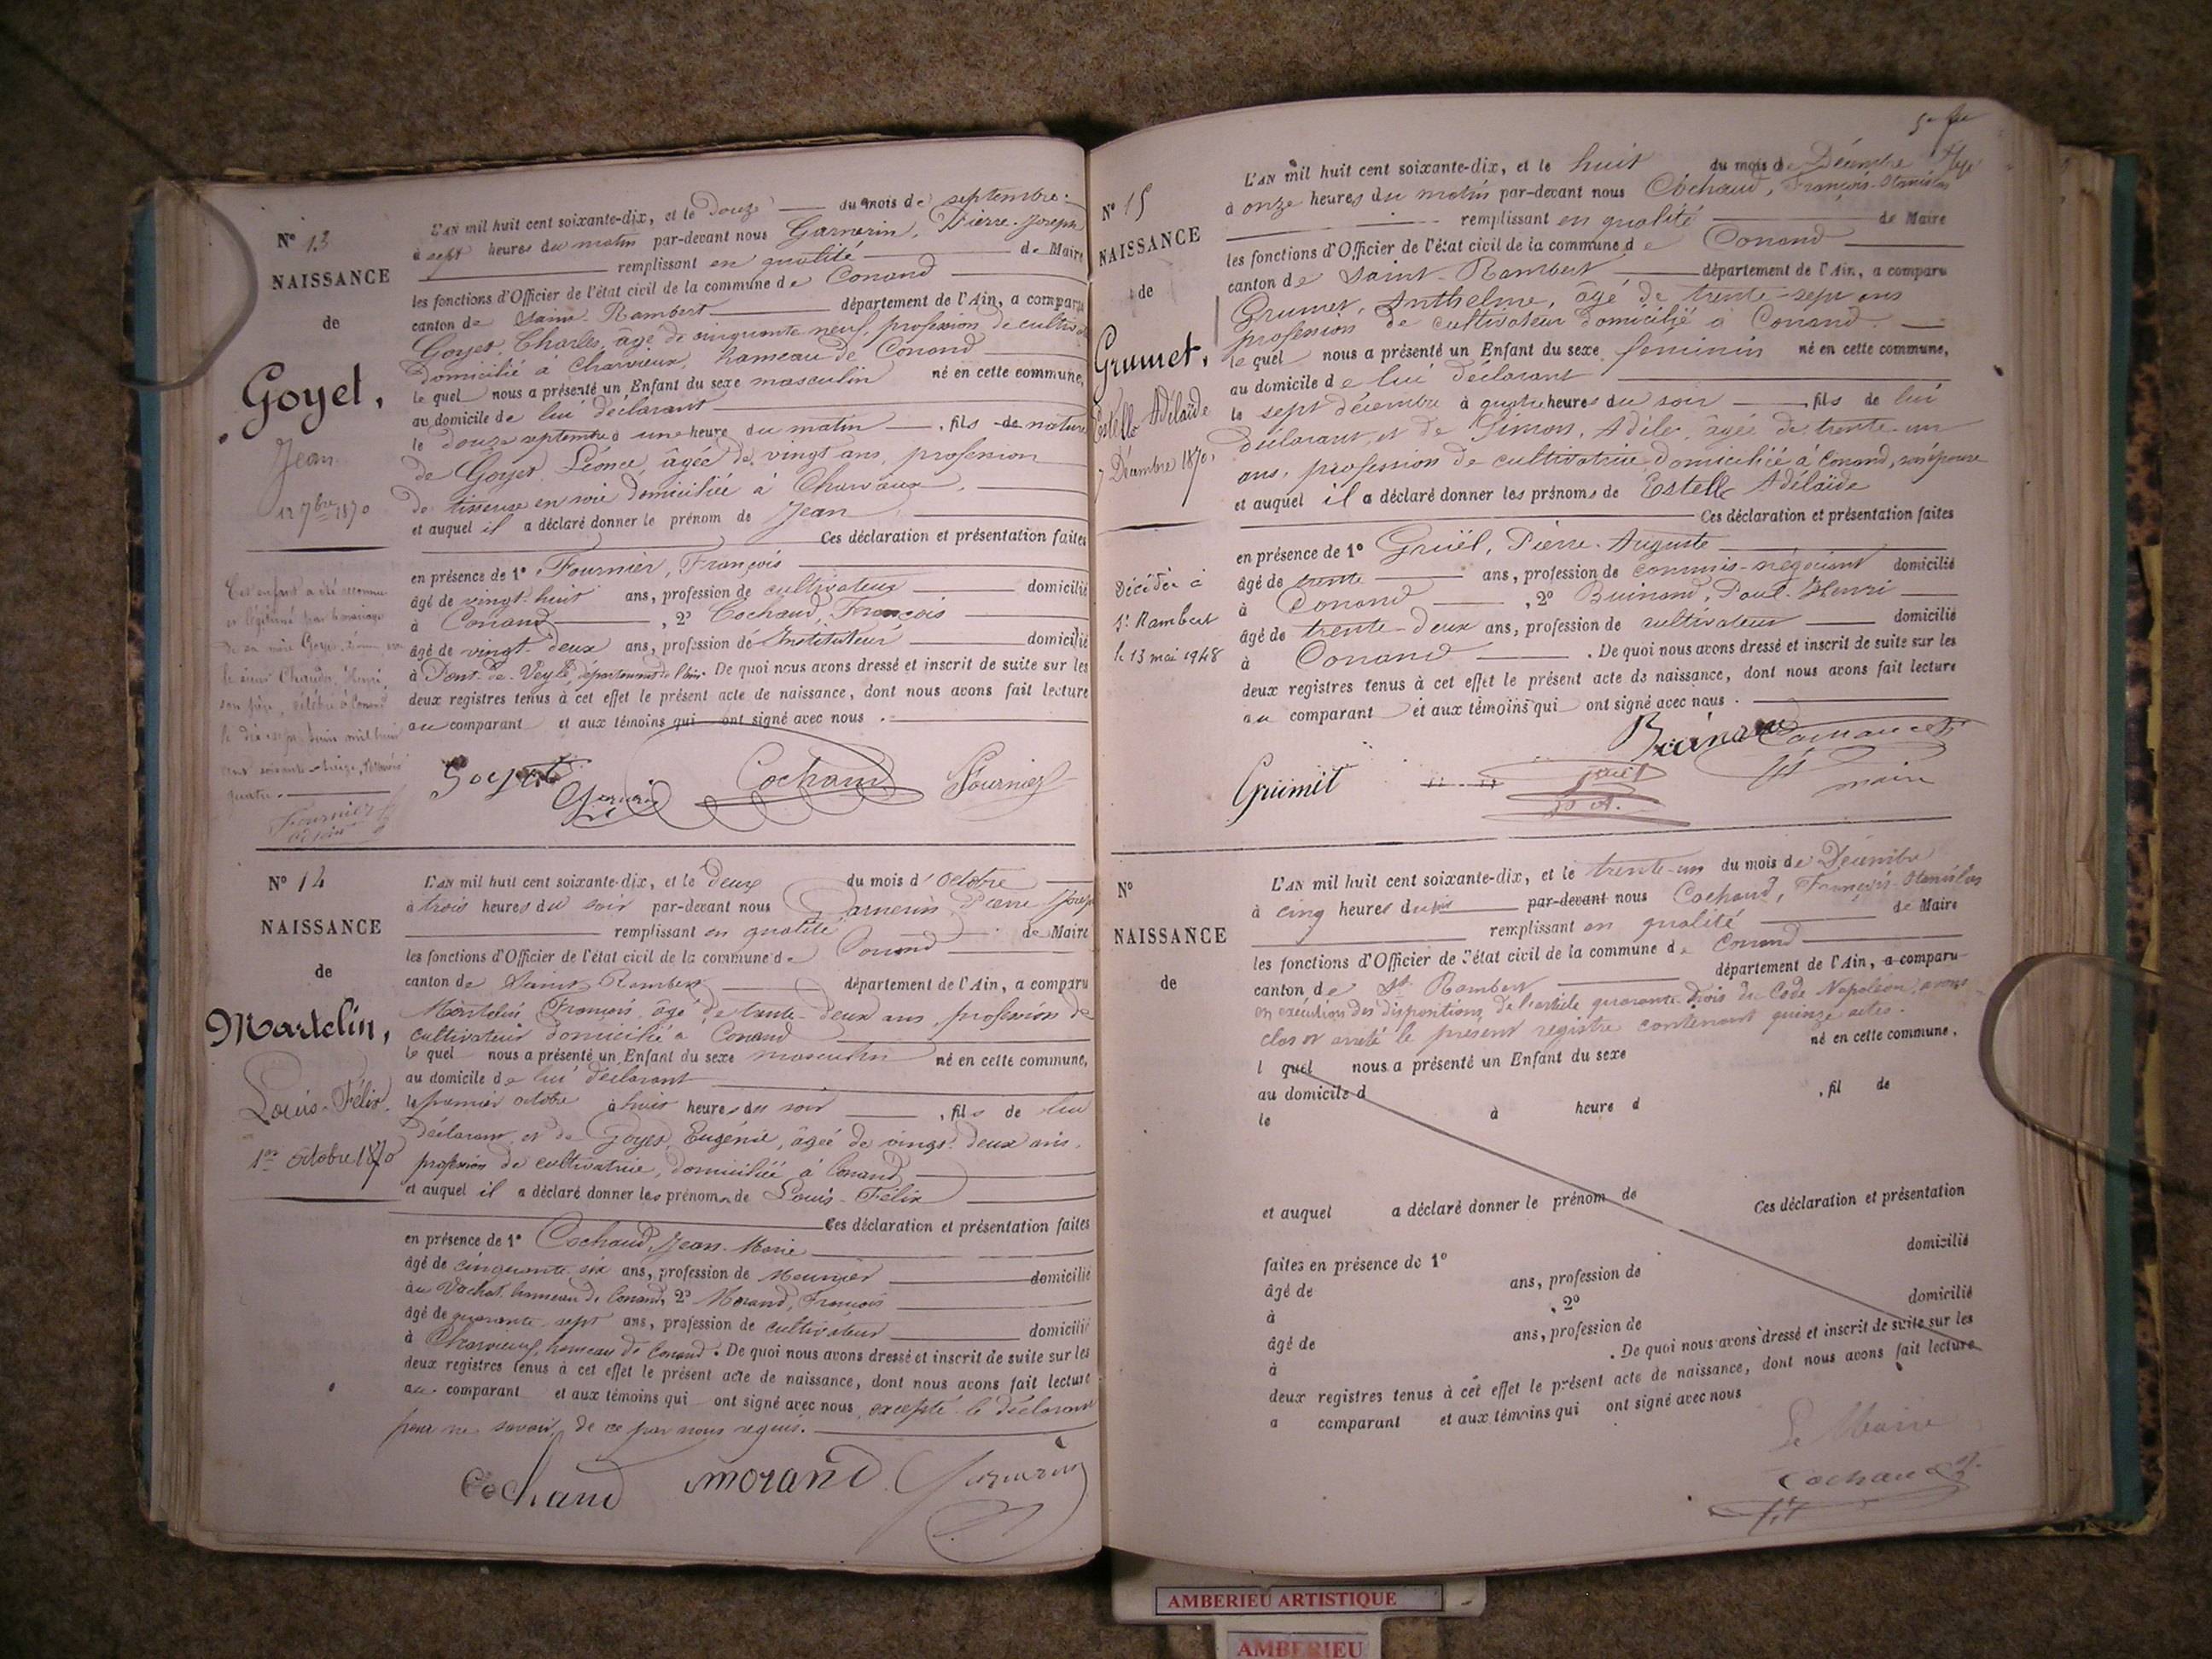 N° 13
NAISSANCE
de
Goyet,
Jean
12 7bre 1870
Cet enfant a été reconnu
et légitimé par le mariage
de sa mère Goyet, Léonce avec
le sieur Chaudo, Henri
son père, célébré à Conand
le dix sept juin mil huit
cent soixante-treize,
quatre.
Fournier
adjoint
L'AN mil huit cent soixante-dix, et le douze du mois de septembre
à sept heures du matin par-devant nous Garnerin, Pierre-Joseph
remplissant en qualité de Maire
les fonctions d'Officier de l'état civil de la commune de Conand
canton de Saint-Rambert département de l'Ain, a comparu
Goyet, Charles, âgé de cinquante neuf, profession de cultivateur
domicilié à Charvieux, hameau de Conand
le quel nous a présenté un Enfant du sexe masculin né en cette commune,
au domicile de lui déclarant
le douze septembre à une heure du matin, fils de nature
de Goyet Léonce, âgée de vingt ans, profession
de tisseuse en soie domiciliée à Charvieux,
et auquel il a déclaré donner le prénom de Jean
Ces déclaration et présentation faites
en présence de 1° Fournier, François
âgé de vingt-huit ans, profession de cultivateur domicilié
à Conand, 2° Cochaud, François
âgé de vingt-deux ans, profession de Instituteur domicilié
à Pont-de-Veyle, département de l'Ain. De quoi nous avons dressé et inscrit de suite sur les
deux registres tenus à cet effet le présent acte de naissance, dont nous avons fait lecture
au comparant et aux témoins qui ont signé avec nous.
Goyet Garnerin Cochaud Fournier
N° 14
NAISSANCE
de
Martelin,
Louis-Félix.
1er octobre 1870
L'AN mil huit cent soixante-dix, et le deux du mois d'octobre
à trois heures du soir par-devant nous Garnerin Pierre Joseph
remplissant en qualité de Maire
les fonctions d'Officier de l'état civil de la commune de Conand
canton de Saint Rambert département de l'Ain, a comparu
Martelin François âgé de trente-deux ans, profession de
cultivateur domicilié à Conand
le quel nous a présenté un Enfant du sexe masculin né en cette commune,
au domicile de lui déclarant
le premier octobre à huit heures du soir, fils de lui
déclarant et de Goyet Eugénie, âgée de vingt-deux ans,
profession de cultivatrice, domiciliée à Conand
et auquel il a déclaré donner les prénoms de Louis-Félix
Ces déclaration et présentation faites
en présence de 1° Cochaud Jean-Marie
âgé de cinquante-six ans, profession de Meunier domicilié
au Vachat, hameau de Conand, 2° Morand, François
âgé de quarante-sept ans, profession de cultivateur domicilié
à Charvieux, hameau de Conand. De quoi nous avons dressé et inscrit de suite sur les
deux registres tenus à cet effet le présent acte de naissance, dont nous avons fait lecture
au comparant et aux témoins qui ont signé avec nous excepté le déclarant
pour ne savoir, de ce par nous requis.
Cochaud morand Garnerin
N° 15
NAISSANCE
de
Grumet,
Estelle Adélaïde
7 Décembre 1870.
Décédée à
St Rambert
le 13 mai 1948
L'AN mil huit cent soixante-dix, et le huit du mois de Décembre
à onze heures du matin par-devant nous Cochaud, François-Stanislas
remplissant en qualité de Maire
les fonctions d'Officier de l'état civil de la commune de Conand
canton de Saint-Rambert département de l'Ain, a comparu
Grumet, Anthelme, âgé de trente-sept ans
profession de cultivateur domicilié à Conand.
le quel nous a présenté un Enfant du sexe féminin né en cette commune,
au domicile de lui déclarant
le sept décembre à quatre heures du soir, fils de lui
déclarant, et de Simon, Adèle, âgée de trente-un
ans, profession de cultivatrice domiciliée à Conand, son épouse
et auquel il a déclaré donner les prénoms de Estelle Adélaïde
Ces déclaration et présentation faites
en présence de 1° Gruël, Pierre-Auguste
âgé de trente ans, profession de commis-négociant domicilié
à Conand, 2° Buinand, Paul-Henri
âgé de trente-deux ans, profession de cultivateur domicilié
à Conand. De quoi nous avons dressé et inscrit de suite sur les
deux registres tenus à cet effet le présent acte de naissance, dont nous avons fait lecture
au comparant et aux témoins qui ont signé avec nous.
Buinand Cochaud
Grumet Gruël maire
N°
NAISSANCE
de
L'AN mil huit cent soixante-dix, et le trente-un du mois de Décembre
à cinq heures du soir par-devant nous Cochaud, François-Stanislas
remplissant en qualité de Maire
les fonctions d'Officier de l'état civil de la commune de Conand
canton de St Rambert département de l'Ain, a comparu
en exécution des dispositions de l'article quarante-trois du Code Napoléon, avons
clos et arrêté le présent registre contenant quinze actes.
l quel nous a présenté un Enfant du sexe né en cette commune,
au domicile d
le à heure d , fil de
et auquel a déclaré donner le prénom de
Ces déclaration et présentation
faites en présence de 1° domicilié
âgé de ans, profession de
à , 2° domicilié
âgé de ans, profession de
à . De quoi nous avons dressé et inscrit de suite sur les
deux registres tenus à cet effet le présent acte de naissance, dont nous avons fait lecture
a comparant et aux témoins qui ont signé avec nous
Le Maire
Cochaud
AMBERIEU ARTISTIQUE
AMBERIEU